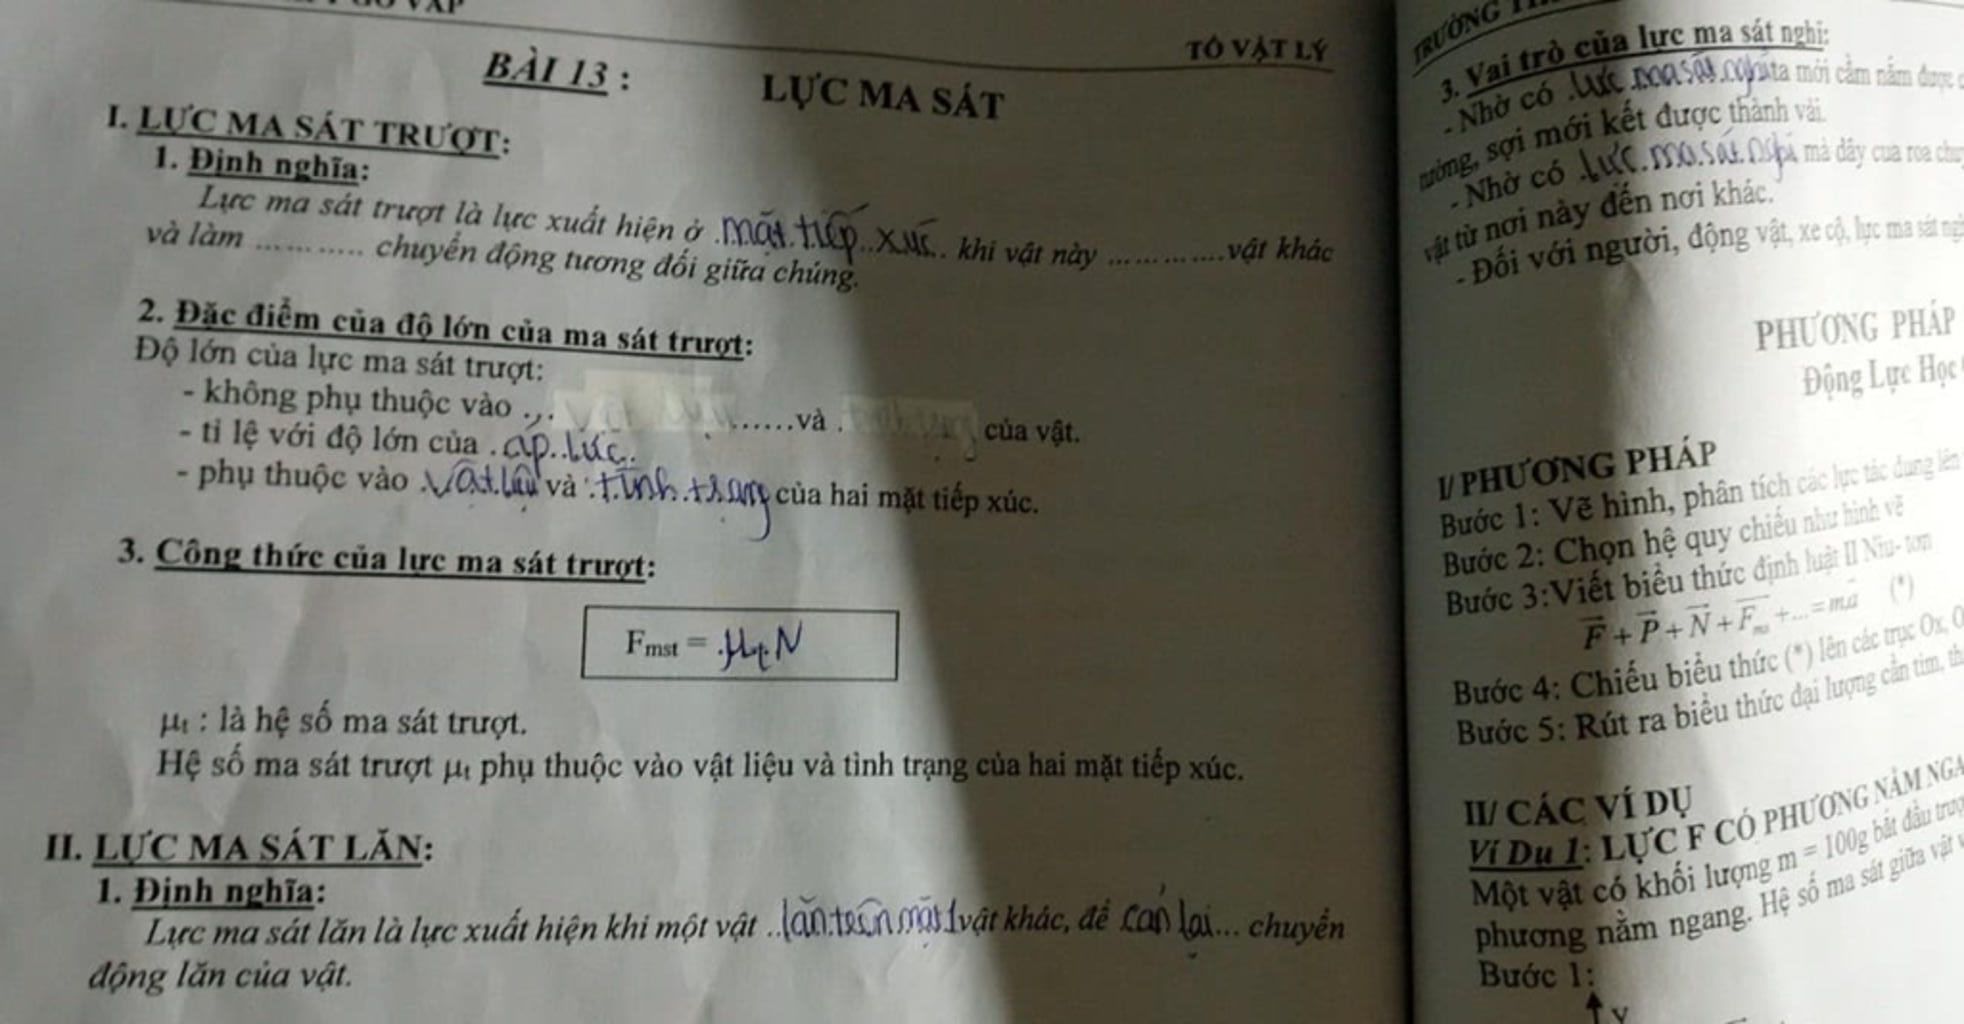 TỔ VẬT LÝ
BÀI 13 : LỰC MA SÁT
I. LỰC MA SÁT TRƯỢT:
1. Định nghĩa:
Lực ma sát trượt là lực xuất hiện ở .mặt.tiếp..xúc.. khi vật này .............vật khác
và làm ........... chuyển động tương đối giữa chúng.
2. Đặc điểm của độ lớn của ma sát trượt:
Độ lớn của lực ma sát trượt:
- không phụ thuộc vào ... ......và . của vật.
- tỉ lệ với độ lớn của .áp..lực..
- phụ thuộc vào .vật.liệu và .tình.trạng của hai mặt tiếp xúc.
3. Công thức của lực ma sát trượt:
Fmst = .μt.N
μt : là hệ số ma sát trượt.
Hệ số ma sát trượt μt phụ thuộc vào vật liệu và tình trạng của hai mặt tiếp xúc.
II. LỰC MA SÁT LĂN:
1. Định nghĩa:
Lực ma sát lăn là lực xuất hiện khi một vật ..lăn.trên.mặt.1 vật khác, để cản lại... chuyển
động lăn của vật.
TRƯỜNG
3. Vai trò của lực ma sát nghỉ:
- Nhờ có .lực.ma.sát.nghỉ ta mới cầm nắm được
tường, sợi mới kết được thành vải.
- Nhờ có .lực.ma.sát.nghỉ mà dây cua roa
vật từ nơi này đến nơi khác.
- Đối với người, động vật, xe cộ, lực ma sát
PHƯƠNG PHÁP
Động Lực Học
I/ PHƯƠNG PHÁP
Bước 1: Vẽ hình, phân tích các lực tác dụng lên
Bước 2: Chọn hệ quy chiếu như hình vẽ
Bước 3:Viết biểu thức định luật II Niu- tơn
F⃗ + P⃗ + N⃗ + F⃗ms + ... = ma⃗ (*)
Bước 4: Chiếu biểu thức (*) lên các trục Ox,
Bước 5: Rút ra biểu thức đại lượng cần tìm,
II/ CÁC VÍ DỤ
Ví Dụ 1: LỰC F CÓ PHƯƠNG NẰM
Một vật có khối lượng m = 100g bắt đầu
phương nằm ngang. Hệ số ma sát giữa vật
Bước 1:
y